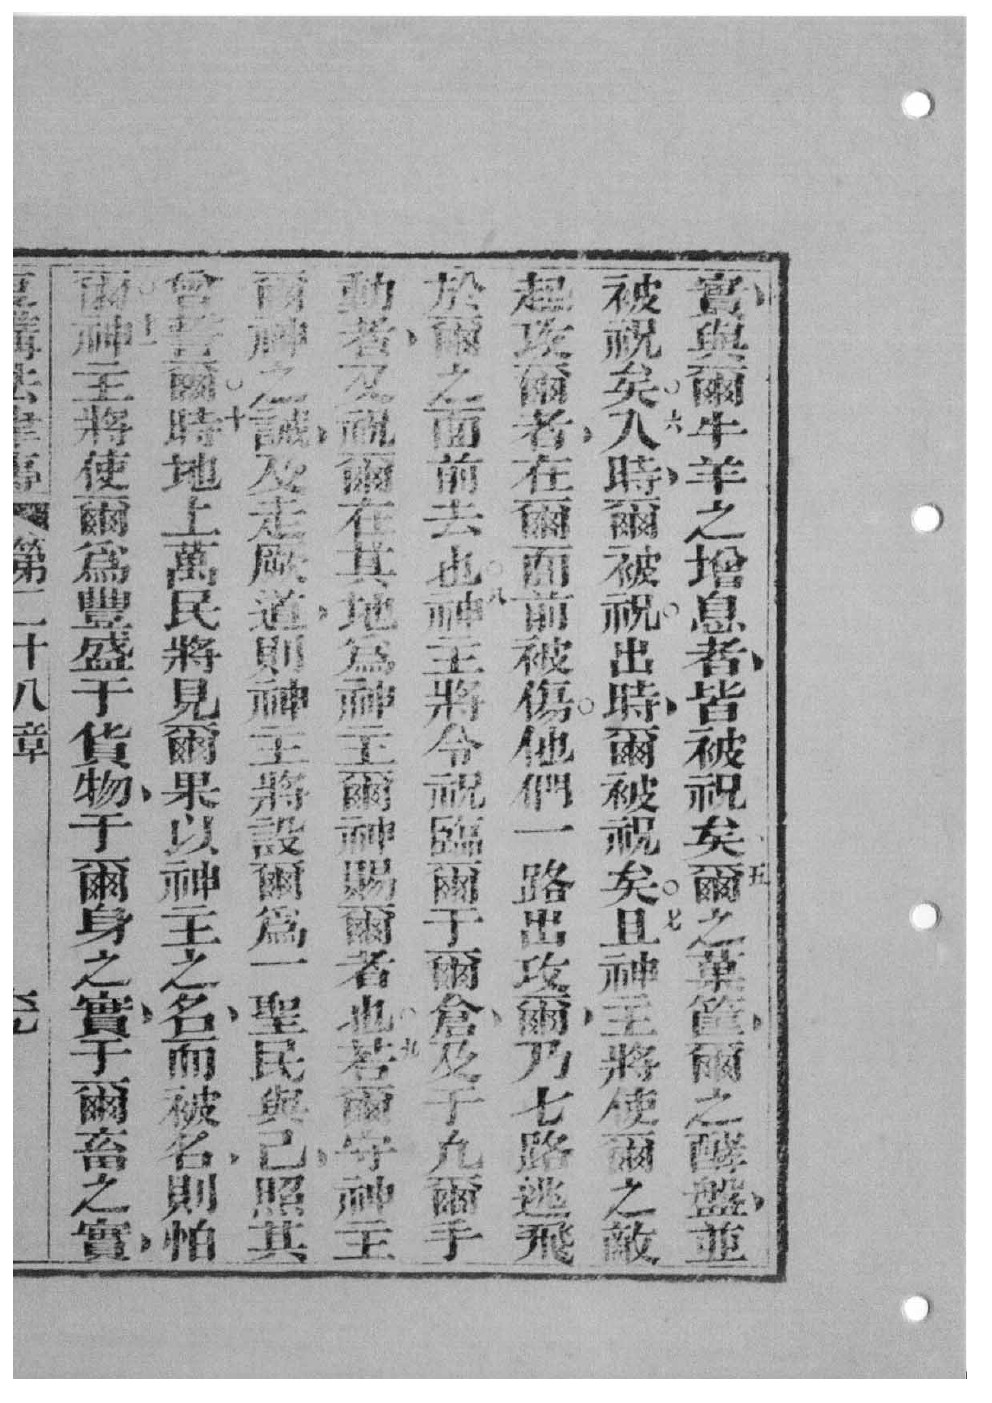 實、與爾牛羊之增息者、皆被祝矣。五爾之菓筐、爾之酵盤、並
被祝矣。六入時、爾被祝。出時、爾被祝矣。七且神主將使爾之敵
起攻爾者、在爾面前被傷。他們一路出攻爾、乃七路逃飛
於爾之面前去也。八神主將令祝臨爾于爾倉、及于凡爾手
動者、及祝爾在其地爲神主爾神賜爾者也。九若爾守神主
爾神之誡、及走厥道、則神主將設爾爲一聖民與己、照其
曾誓爾。十時地上萬民將見爾果以神主之名、而被名、則怕
爾。十一神主將使爾爲豐盛于貨物、于爾身之實、于爾畜之實、
復講法律書 第二十八章